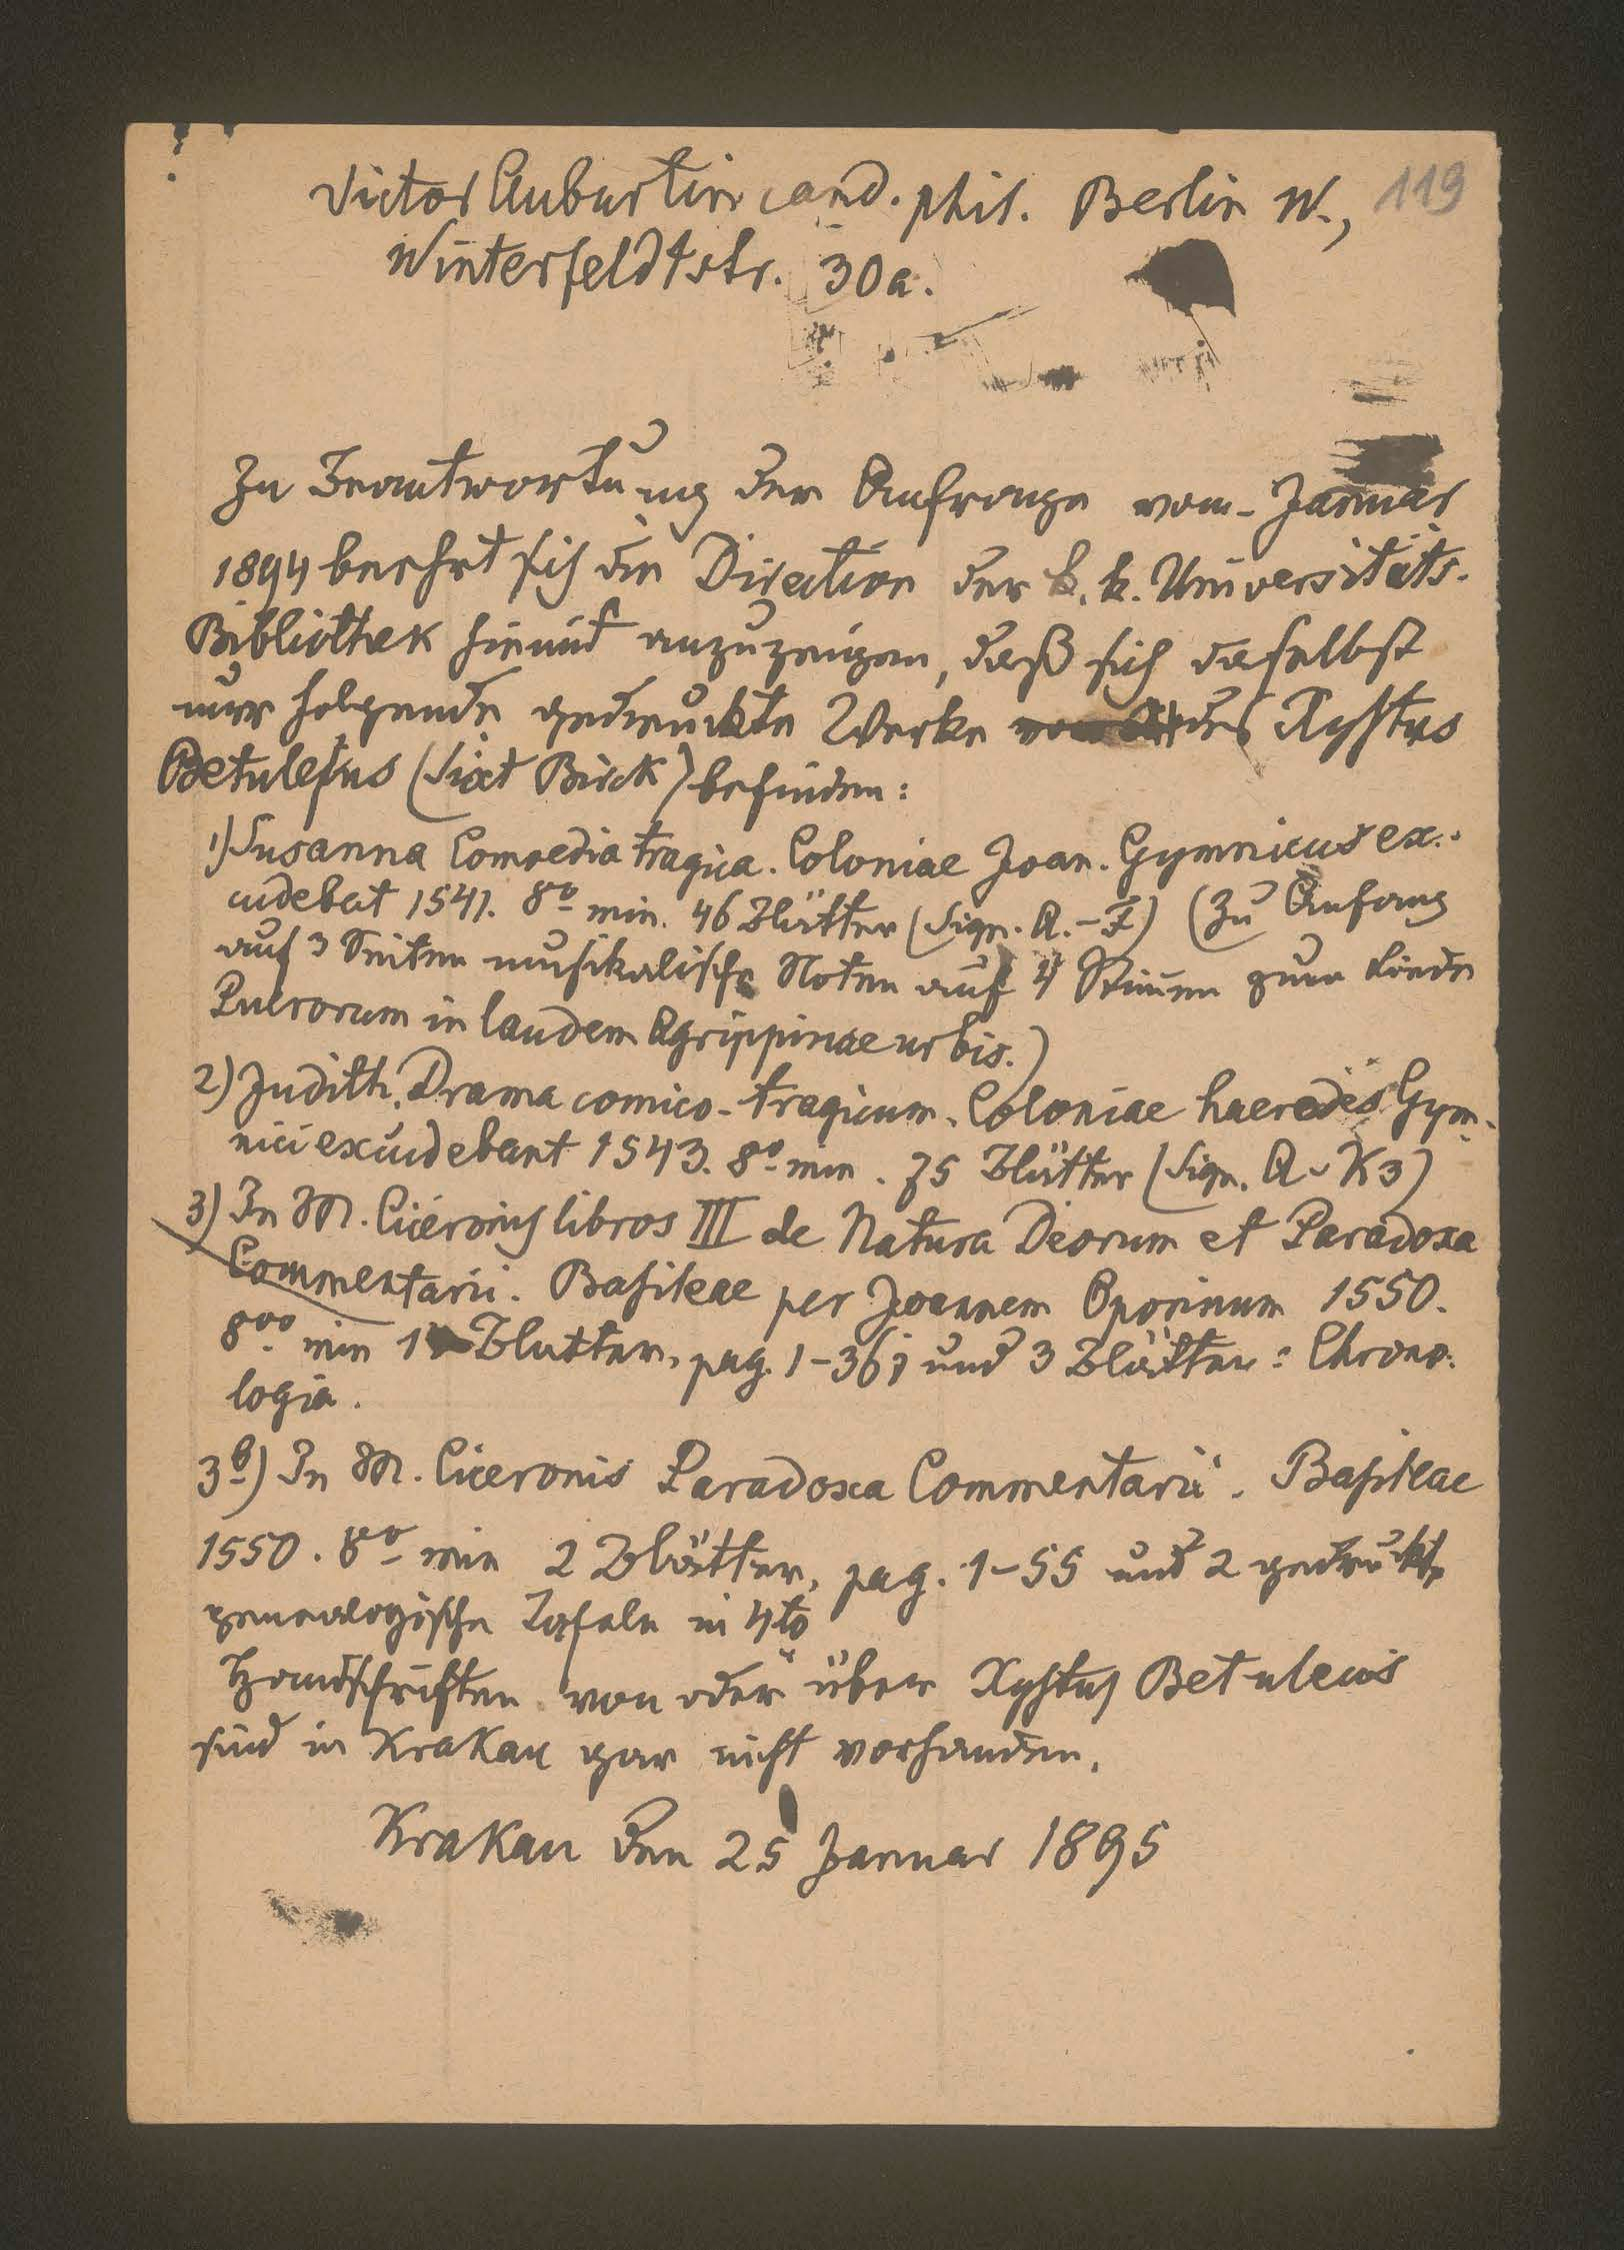 Victor Auburtin cand. phil. Berlin W., 119
Winterfeldtstr. 30a.
Zu Beantwortung der Anfrage vom - Januar
1894 beehrt sich die Direction der k. k. Universitäts-
Bibliothek hiemit anzuzeigen, daß sich daselbst
nur folgende gedruckte Werke des Xystus
Betulejus (Sixt Birck) befinden:
1) Susanna Comoedia tragica. Coloniae Joan. Gymnicus ex-
cudebat 1541. 8o min. 46 Blätter (Sign. A.-F) (Zu Anfang
auf 3 Seiten musikalische Noten auf 4 Stimen zum Liede
Puerorum in laudem Agrippinae urbis.)
2) Judith. Drama comico-tragicum. Coloniae haeredes Gym-
nici excudebant 1543. 8o min. 75 Blätter (Sign. A-K3)
3) In M. Ciceronis libros III de Natura Deorum et Paradoxa
Commentarii. Basileae per Joannem Oporinum 1550.
8vo min Blatter, pag. 1-367 und 3 Blätter: Chrono-
logia.
3b) In M. Ciceronis Paradoxa Commentarii. Basileae
1550. 8o min 2 Blätter, pag. 1-55 und 2 gedruckte
genealogische Tafeln in 4to
Handschriften von oder über Xystus Betuleius
sind in Krakau gar nicht vorhanden.
Krakau den 25 Januar 1895